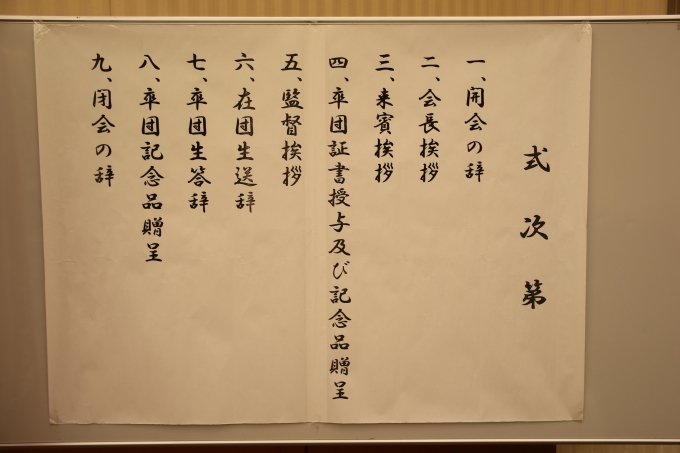 式次第
一、開会の辞
二、会長挨拶
三、来賓挨拶
四、卒団証書授与及び記念品贈呈
五、監督挨拶
六、在団生送辞
七、卒団生答辞
八、卒団記念品贈呈
九、閉会の辞